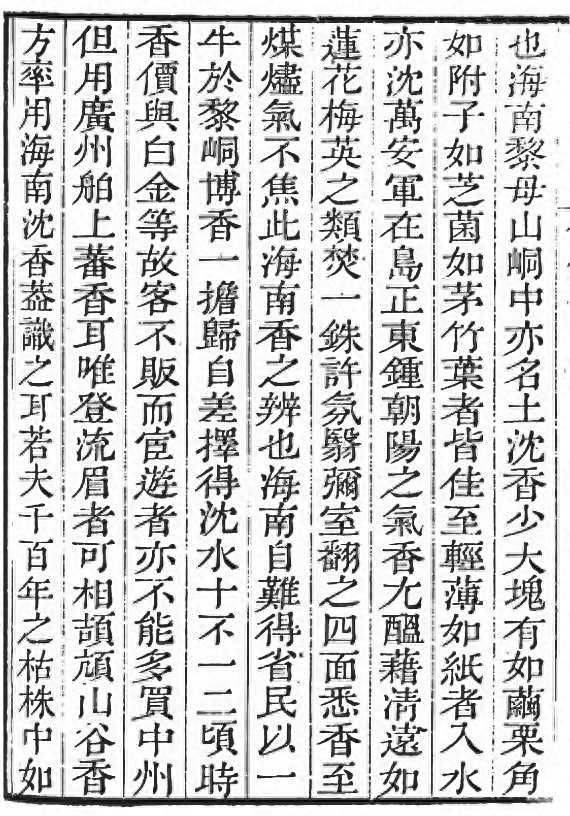 也海南黎母山峒中亦名土沈香少大塊有如繭栗角
如附子如芝菌如茅竹葉者皆佳至輕薄如紙者入水
亦沈萬安軍在島正東鍾朝陽之氣香尤醞藉清遠如
蓮花梅英之類焚一銖許氛翳彌室翻之四面悉香至
煤燼氣不焦此海南香之辨也海南自難得省民以一
牛於黎峒博香一擔歸自差擇得沈水十不一二頃時
香價與白金等故客不販而宦遊者亦不能多買中州
但用廣州舶上蕃香耳唯登流眉者可相頡頏山谷香
方率用海南沈香葢識之耳若夫千百年之枯株中如